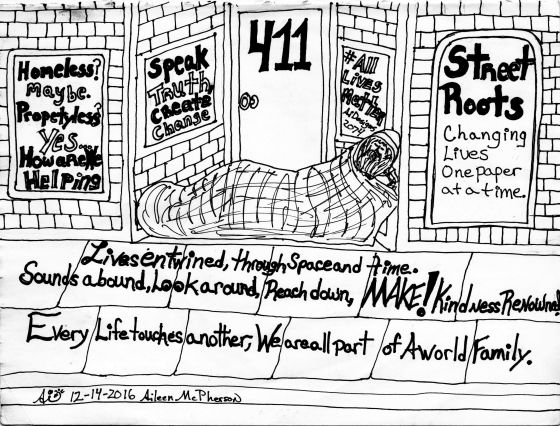 Homeless?
Maybe.
Propertyless?
Yes...
How are We
Helping
Speak
Truth,
Create
Change
411
#All
Lives
Matter
Street
Roots
Changing
Lives
One paper
at a time.
Lives entwined, through Space and time.
Sounds abound, Look around, Reach down, MAKE! Kindness Renowned
Every Life touches another, We are all part of A world Family.
12-14-2016 Aileen McPherson